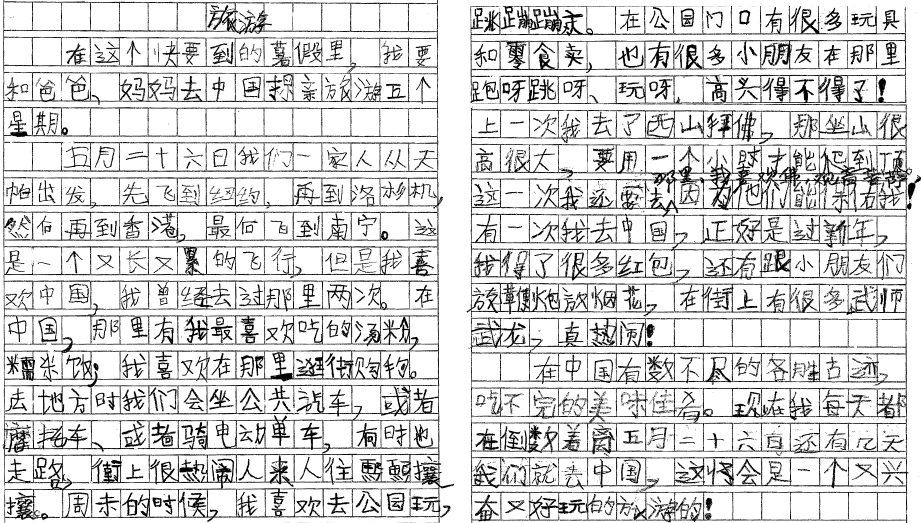 旅游
在这个快要到的暑假里，我要
和爸爸、妈妈去中国探亲旅游五个
星期。
五月二十六日我们一家人从天
帕出发，先飞到纽约，再到洛杉机，
然后再到香港，最后飞到南宁。这
是一个又长又累的飞行，但是我喜
欢中国，我曾经去过那里两次。在
中国，那里有我最喜欢吃的汤粉，
糯米饭；我喜欢在那里逛街购物。
去地方时我们会坐公共汽车，或者
摩托车、或者骑电动单车，有时也
走路，街上很热闹人来人往熙熙攘
攘。周末的时候，我喜欢去公园玩，
跳蹦蹦床。在公园门口有很多玩具
和零食卖，也有很多小朋友在那里
跑呀跳呀、玩呀，高兴得不得了！
上一次我去了西山拜佛，那坐山很
高很大，要用一个小时才能爬到顶
那里，我喜欢佛，和菩萨。
这一次我还要去因为他们能保右我！
有一次我去中国，正好是过新年，
我得了很多红包，还有跟小朋友们
放鞭炮放烟花，在街上有很多武师
武龙，真热闹！
在中国有数不尽的各胜古迹，
吃不完的美味佳肴。现在我每天都
在倒数着离五月二十六日还有几天
我们就去中国，这将会是一个又兴
奋又好玩的旅游的！